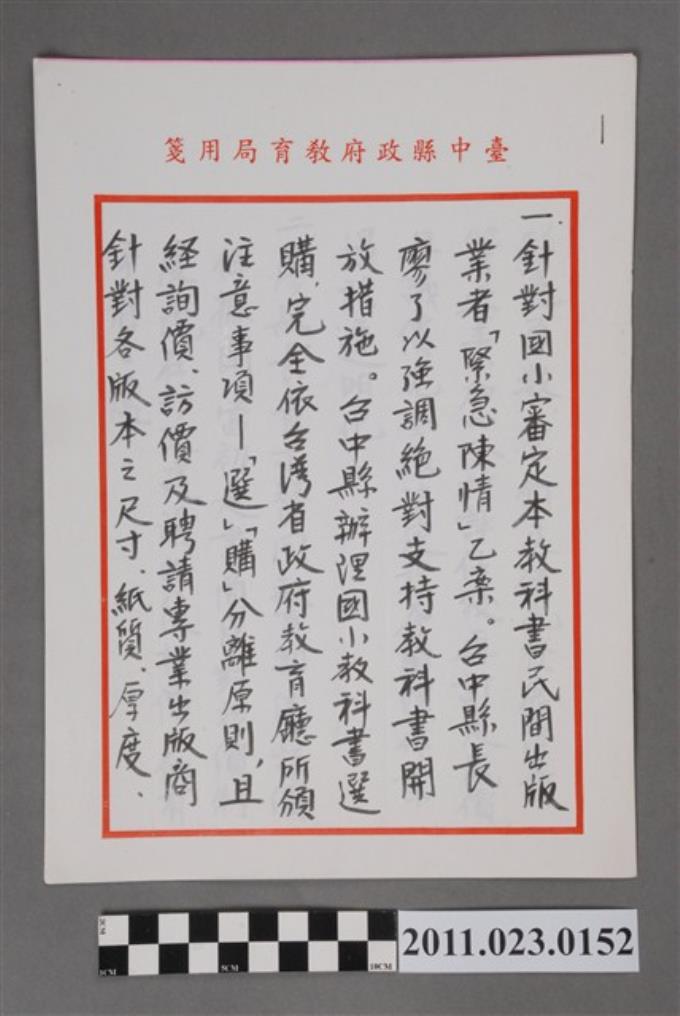 臺中縣政府教育局用箋
一.針對國小審定本教科書民間出版
業者「緊急陳情」乙案。台中縣長
廖了以強調絕對支持教科書開
放措施。台中縣辦理國小教科書選
購、完全依台湾省政府教育廳所頒
注意事項—「選」「購」分離原則,且
経詢價、訪價及聘請專業出版商
針對各版本之尺寸、紙質、厚度、
5CM
10CM
2011.023.0152